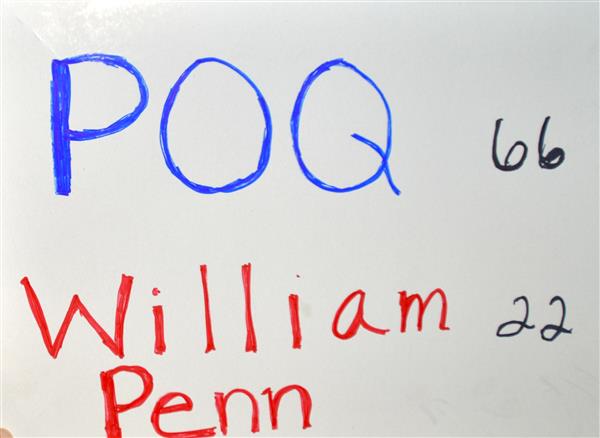 POQ 66
William 22
Penn